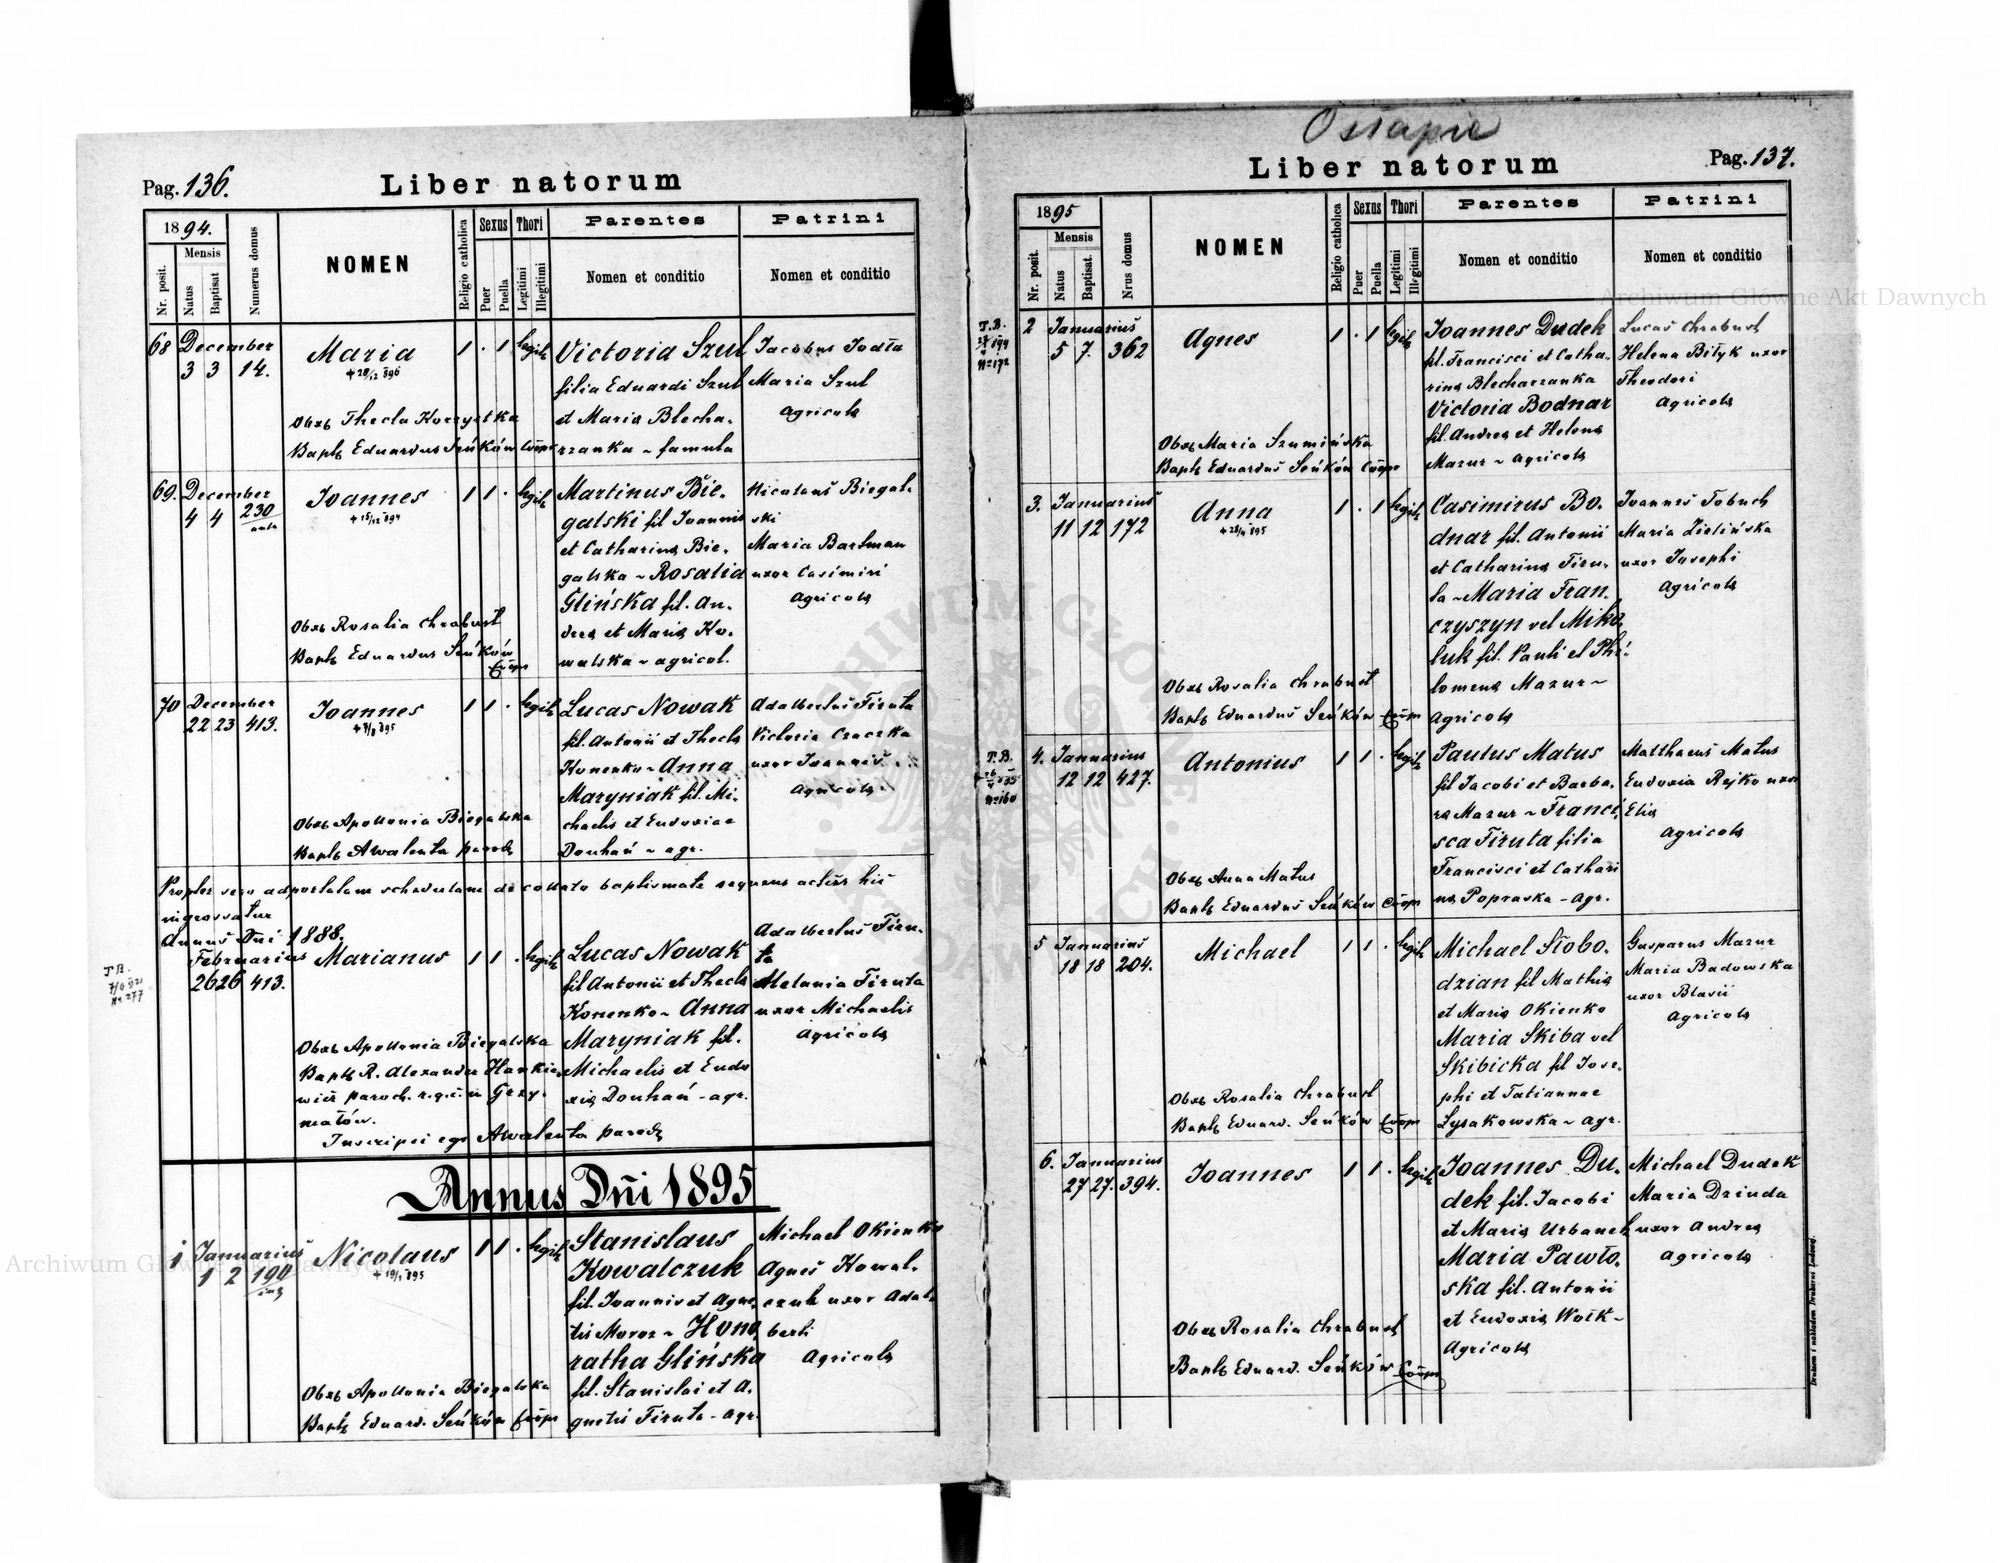 Ostapie
Pag. 136.
Liber natorum
1894.
Mensis
Nr. posit.
Natus
Baptisat
Numerus domus
NOMEN
Religio catholica
Sexus
Puer
Puella
Thori
Legitimi
Illegitimi
Parentes
Nomen et conditio
Patrini
Nomen et conditio
68 December
3 3 14.
Maria
+ 28/12 896
Obst Thecla Korzystka
Bapts Eduardus Seńków Coop
1 . 1 legit
Victoria Szul
filia Eduardi Szul
et Maria Blecha-
rzanka ~ famula
Jacobus Jodła
Maria Szul
Agricola
69. December
4 4 230
Joannes
+ 15/12 894
Obst Rosalia Chrabust
Bapts Eduardus Seńków
Coop
1 1 . legit
Martinus Bie-
galski fil Joannis
et Catharina Bie-
galska ~ Rosalia
Glińska fil. An-
drea et Maria Ko-
walska ~ agricol.
Nicolaus Biegal-
ski
Maria Bartman
uxor Casimiri
Agricola
70 December
22 23 413.
Joannes
Obst Apollonia Biegalska
Bapts A Walenta paroch
1 1 . legit
Lucas Nowak
fil. Antonii et Thecla
Konenko ~ Anna
Maryniak fil. Mi-
chaelis et Eudoxiae
Douhań ~ agr.
Adalbertus Firuta
Victoria Czaczka
uxor Joannis
Agricola
Propter sero adportatam schedulam de collato baptismate sequens actus hic
ingrossatur
Annus Dni 1888.
Februarius
26 26 413.
T.B.
Nr 277
Marianus
Obst Apollonia Biegalska
Bapts R. Alexander Hankie-
wicz paroch. r.g.c. in Grzy-
małów.
Inscripsi ego A Walenta paroch
1 1 . legit
Lucas Nowak
fil Antonii et Thecla
Konenko ~ Anna
Maryniak fil.
Michaelis et Eudo
xia Douhań - agr.
Adalbertus Firu-
ta
Melania Firuta
uxor Michaelis
Agricola
Annus Dñi 1895
1 Januarius
1 2 190
Nicolaus
+ 19/1 895
Obst Apollonia Biegalska
Bapts Eduard. Seńków Coop
1 1 . legit
Stanislaus
Kowalczuk
fil. Joannis et Agne-
tis Moroz ~ Hono
ratha Glińska
fil. Stanislai et A-
gnetis Firuta - Agr.
Michael Okienko
Agnes Kowal-
czuk uxor Adal-
berti
Agricola
Pag. 137.
Liber natorum
1895
Mensis
Nr. posit.
Natus
Baptisat.
Nrus domus
NOMEN
Religio catholica
Sexus
Puer
Puella
Thori
Legitimi
Illegitimi
Parentes
Nomen et conditio
Patrini
Nomen et conditio
T.B.
Nr 172
2 Januarius
5 7. 362
Agnes
Obst Maria Szumińska
Bapts Eduardus Seńków Coop
1 . 1 legit
Joannes Dudek
fil. Francisci et Catha-
rina Blecharzanka
Victoria Bodnar
fil. Andrea et Helena
Mazur ~ Agricola
Lucas Chrabust
Helena Biłyk uxor
Theodori
Agricola
3. Januarius
11 12 172
Anna
Obst Rosalia Chrabust
Bapts Eduardus Seńków Coop
1 . 1 legit
Casimirus Bo-
dnar fil. Antonii
et Catharina Firu-
ta ~ Maria Fran-
czyszyn vel Miko
luk fil. Pauli et Phi-
lomena Mazur ~
Agricola
Joannes Tobuch
Maria Zielińska
uxor Josephi
Agricola
T.B.
Nr 160
4. Januarius
12 12 427.
Antonius
Obst Anna Matus
Bapts Eduardus Seńków Coop
1 1 . legit
Paulus Matus
fil Jacobi et Barba-
ra Mazur ~ Franci-
sca Firuta filia
Francisci et Cathari
na Popraska - Agr.
Matthaeus Matus
Eudoxia Rejko uxor
Elia
Agricola
5 Januarius
18 18 204.
Michael
Obst Rosalia Chrabust
Bapts Eduard. Seńków Coop
1 1 . legit
Michael Słobo-
dzian fil Mathia
et Maria Okienko
Maria Skiba vel
Skibicka fil Jose-
phi et Tatiannae
Lysakowska ~ Agr.
Gasparus Mazur
Maria Badowska
uxor Blasii
Agricola
6. Januarius
27 27. 394.
Joannes
Obst Rosalia Chrabust
Bapts Eduard. Seńków Coop
1 1 . legit
Joannes Du-
dek fil. Jacobi
et Maria Urbanek
Maria Pawło-
ska fil. Antonii
et Eudoxia Wołk ~
Agricola
Michael Dudek
Maria Dziuda
uxor Andrea
Agricola
Drukiem i nakładem Drukarni Ludowej.
Archiwum Główne Akt Dawnych
Archiwum Główne Akt Dawnych
ARCHIWUM GŁÓWNE AKT DAWNYCH